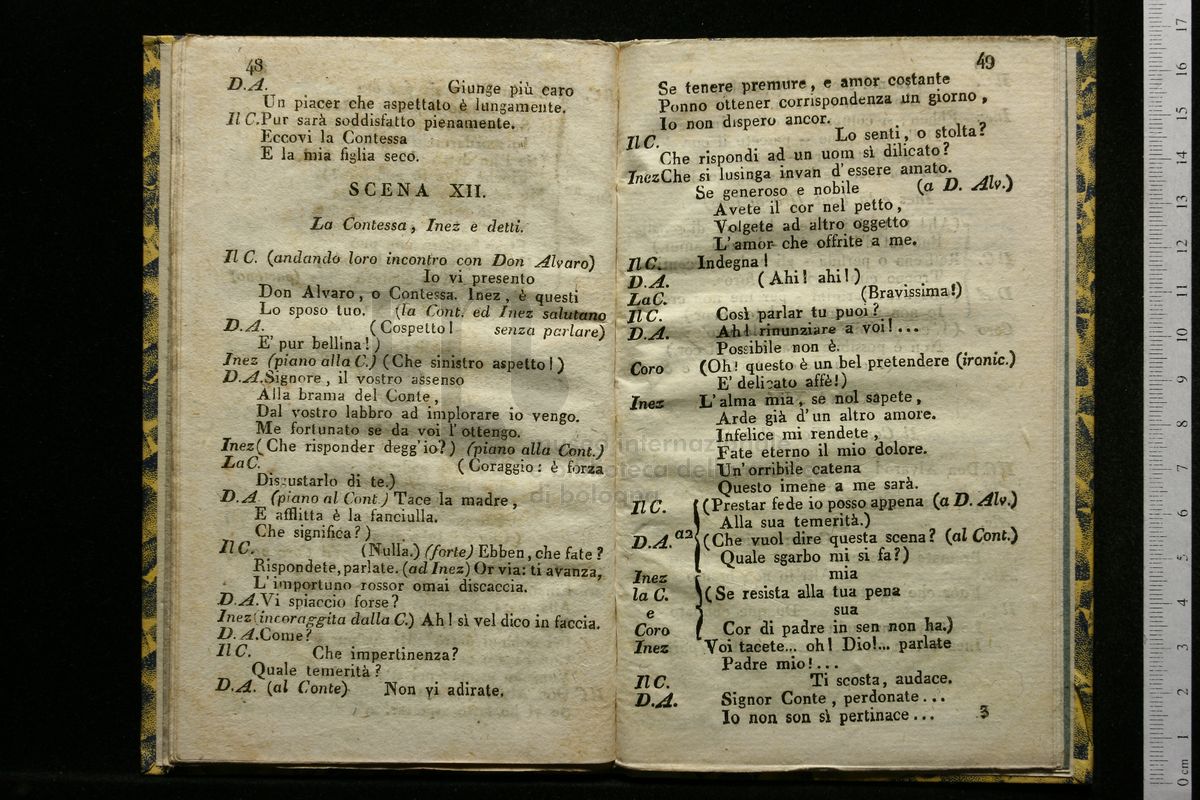 48
D.A. Giunge più caro
Un piacer che aspettato è lungamente.
Il C. Pur sarà soddisfatto pienamente.
Eccovi la Contessa
E la mia figlia seco.
SCENA XII.
La Contessa, Inez e detti.
Il C. (andando loro incontro con Don Alvaro)
Io vi presento
Don Alvaro, o Contessa. Inez, è questi
Lo sposo tuo. (la Cont. ed Inez salutano
D.A. (Cospetto! senza parlare)
E' pur bellina!)
Inez (piano alla C.) (Che sinistro aspetto!)
D.A. Signore, il vostro assenso
Alla brama del Conte,
Dal vostro labbro ad implorare io vengo.
Me fortunato se da voi l'ottengo.
Inez (Che risponder degg'io?) (piano alla Cont.)
La C. (Coraggio: è forza
Disgustarlo di te.)
D.A. (piano al Cont.) Tace la madre,
E afflitta è la fanciulla.
Che significa?)
Il C. (Nulla.) (forte) Ebben, che fate?
Rispondete, parlate. (ad Inez) Or via: ti avanza,
L'importuno rossor omai discaccia.
D.A. Vi spiaccio forse?
Inez (incoraggita dalla C.) Ah! sì vel dico in faccia.
D.A. Come?
Il C. Che impertinenza?
Quale temerità?
D.A. (al Conte) Non vi adirate.
49
Se tenere premure, e amor costante
Ponno ottener corrispondenza un giorno,
Io non dispero ancor.
Il C. Lo senti, o stolta?
Che rispondi ad un uom sì dilicato?
Inez Che si lusinga invan d'essere amato.
Se generoso e nobile (a D. Alv.)
Avete il cor nel petto,
Volgete ad altro oggetto
L'amor che offrite a me.
Il C. Indegna!
D.A. (Ahi! ahi!)
La C. (Bravissima!)
Il C. Così parlar tu puoi?
D.A. Ah! rinunziare a voi!...
Possibile non è.
Coro (Oh! questo è un bel pretendere (ironic.)
E' delicato affè!)
Inez L'alma mia, se nol sapete,
Arde già d'un altro amore.
Infelice mi rendete,
Fate eterno il mio dolore.
Un'orribile catena
Questo imene a me sarà.
Il C. (Prestar fede io posso appena (a D. Alv.)
Alla sua temerità.)
D.A. a2 (Che vuol dire questa scena? (al Cont.)
Quale sgarbo mi si fa?)
Inez mia
la C. (Se resista alla tua pena
e sua
Coro Cor di padre in sen non ha.)
Inez Voi tacete... oh! Dio!... parlate
Padre mio!...
Il C. Ti scosta, audace.
D.A. Signor Conte, perdonate...
Io non son sì pertinace... 3